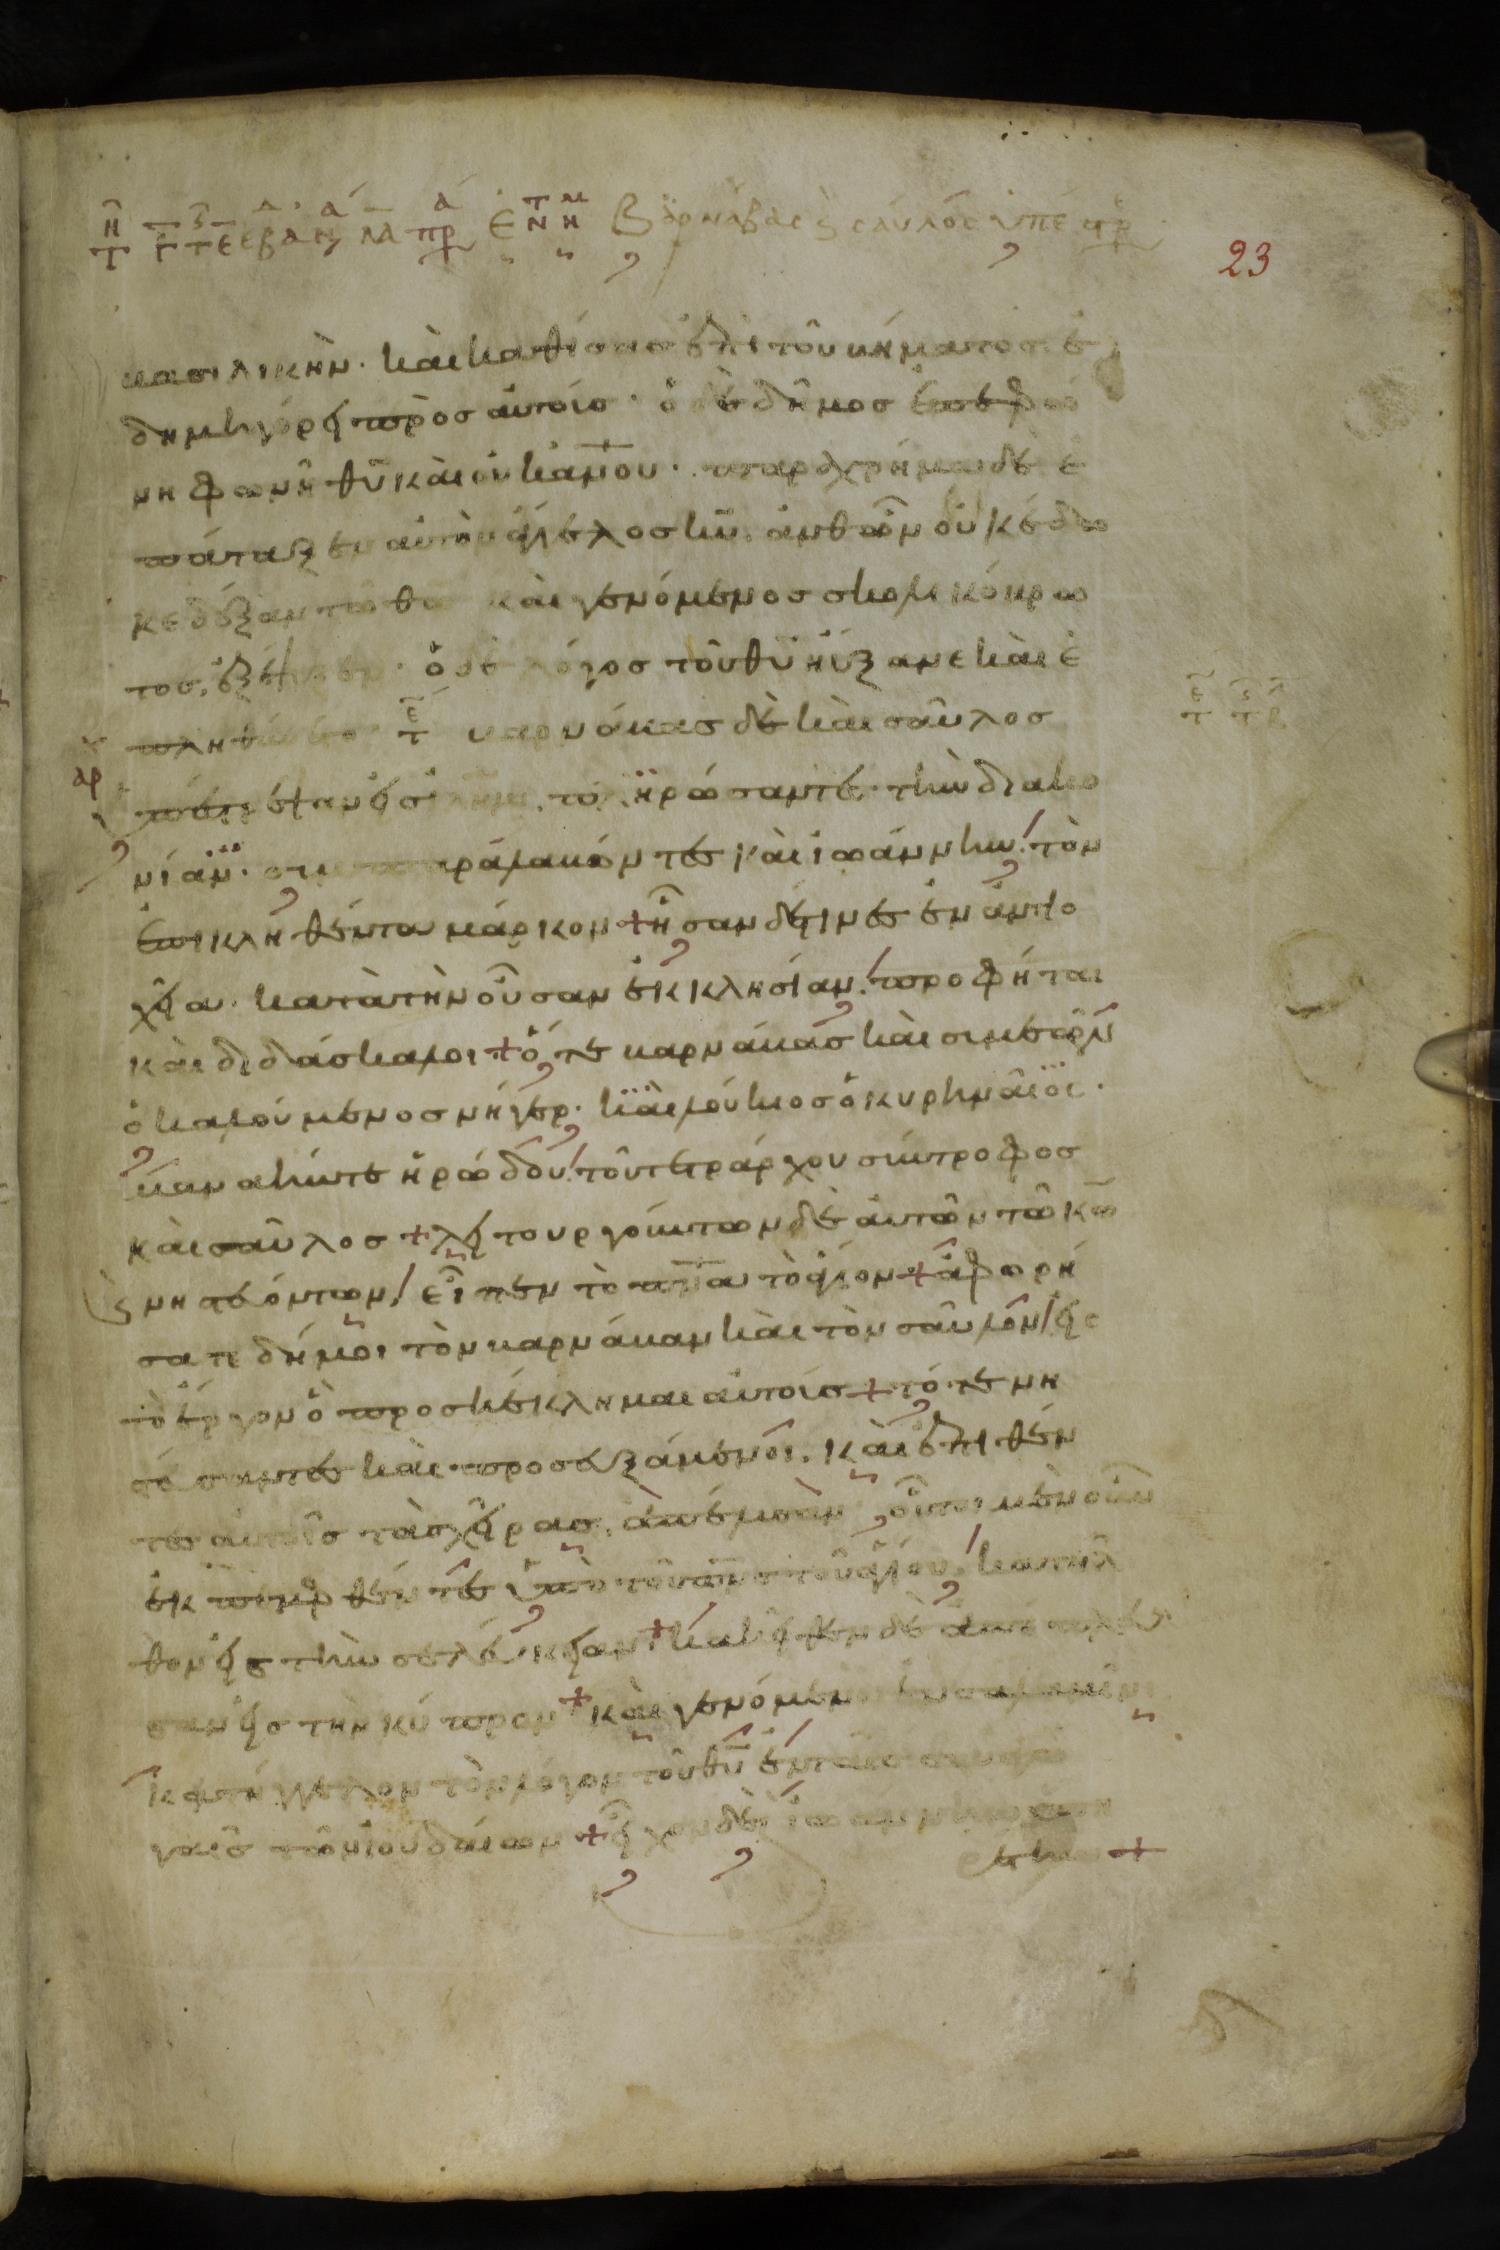 βαρνάβας ϛ σαύλος ὑπέστρ
23
βασιλικὴν · καὶ καθίσας ἐπὶ τοῦ βήματος ἐ
δημηγόρει πρὸς αὐτούς · ὁ δὲ δῆμος ἐπεφώ
νη φωνὴ θῦ καὶ οὐκ ἀνου · παραχρῆμα δὲ ἐ
πάταξεν αὐτὸν ἄγγελος κῦ. ἀνθ ὧν οὐκ ἔδω
κε δόξαν τῶ θω καὶ γενόμενος σκωληκόβρω
τος, ἐξέψυξεν · ὁ δὲ λόγος τοῦ θῦ ηὔξανε καὶ ἐ
πληθύνετο · βαρνάβας δὲ καὶ σαῦλος
ὑπέστρεψαν εἰς ἱλημ, πληρώσαντες τὴν διακο
νίαν · συμπαραλαβόντες καὶ ἰωάννην τὸν
ἐπικληθέντα μάρκον + ἦσαν δέ τινες ἐν ἀντιο
χεία · κατὰ τὴν οὖσαν ἐκκλησίαν προφῆται
καὶ διδάσκαλοι + ὅ τε βαρνάβας καὶ συμεὼν
ὁ καλούμενος νήγερ · καὶ λούκιος ὁ κυρηναῖος ·
μαναήν τε ἡρώδου τοῦ τετράρχου σύντροφος
καὶ σαῦλος + λειτουργούντων δὲ αὐτῶν τῶ κω
ϛ νηστευόντων εἶπεν τὸ πνα τὸ ἅγιον + ἀφορί
σατε δή μοι τὸν βαρνάβαν καὶ τὸν σαῦλον εἰς
τὸ ἔργον ὃ προσκέκλημαι αὐτούς + τότε νη
στεύσαντες καὶ προσευξάμενοι, καὶ ἐπιθέν
τες αὐτοῖς τὰς χεῖρας, ἀπέλυσαν οὗτοι μὲν οὖν
ἐκπεμφθέντες ὑπὸ τοῦ πνς τοῦ ἁγίου, κατῆλ
θον εἰς τὴν σελεύκειαν + κακεῖθεν δὲ ἀπέπλευ
σαν εἰς τὴν κύπρον + καὶ γενόμενοι ἐν σαλαμῖνι
κατήγγελλον τὸν λόγον τοῦ θῦ ἐν ταῖς συναγω
γαῖς τῶν ἰουδαίων + εἶχον δὲ ἰωάννην ὑπη
ρέτην +